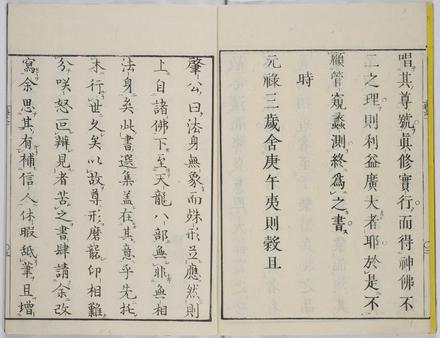 唱其尊號眞修實行而得神佛不
二之理則利益廣大者耶於是不
顧管窺蠡測終爲之書
時
元祿三歳舍庚午夷則穀旦
肇公曰法身無象而殊形並應然則
上自諸佛下至天龍八部無非無相
法身矣此書選集蓋在其意乎先托
末行世久矣以故尊形磨龍印相難
分咲怒叵辨見者苦之書肆請余改
寫余思其有補信人休暇舐筆且增